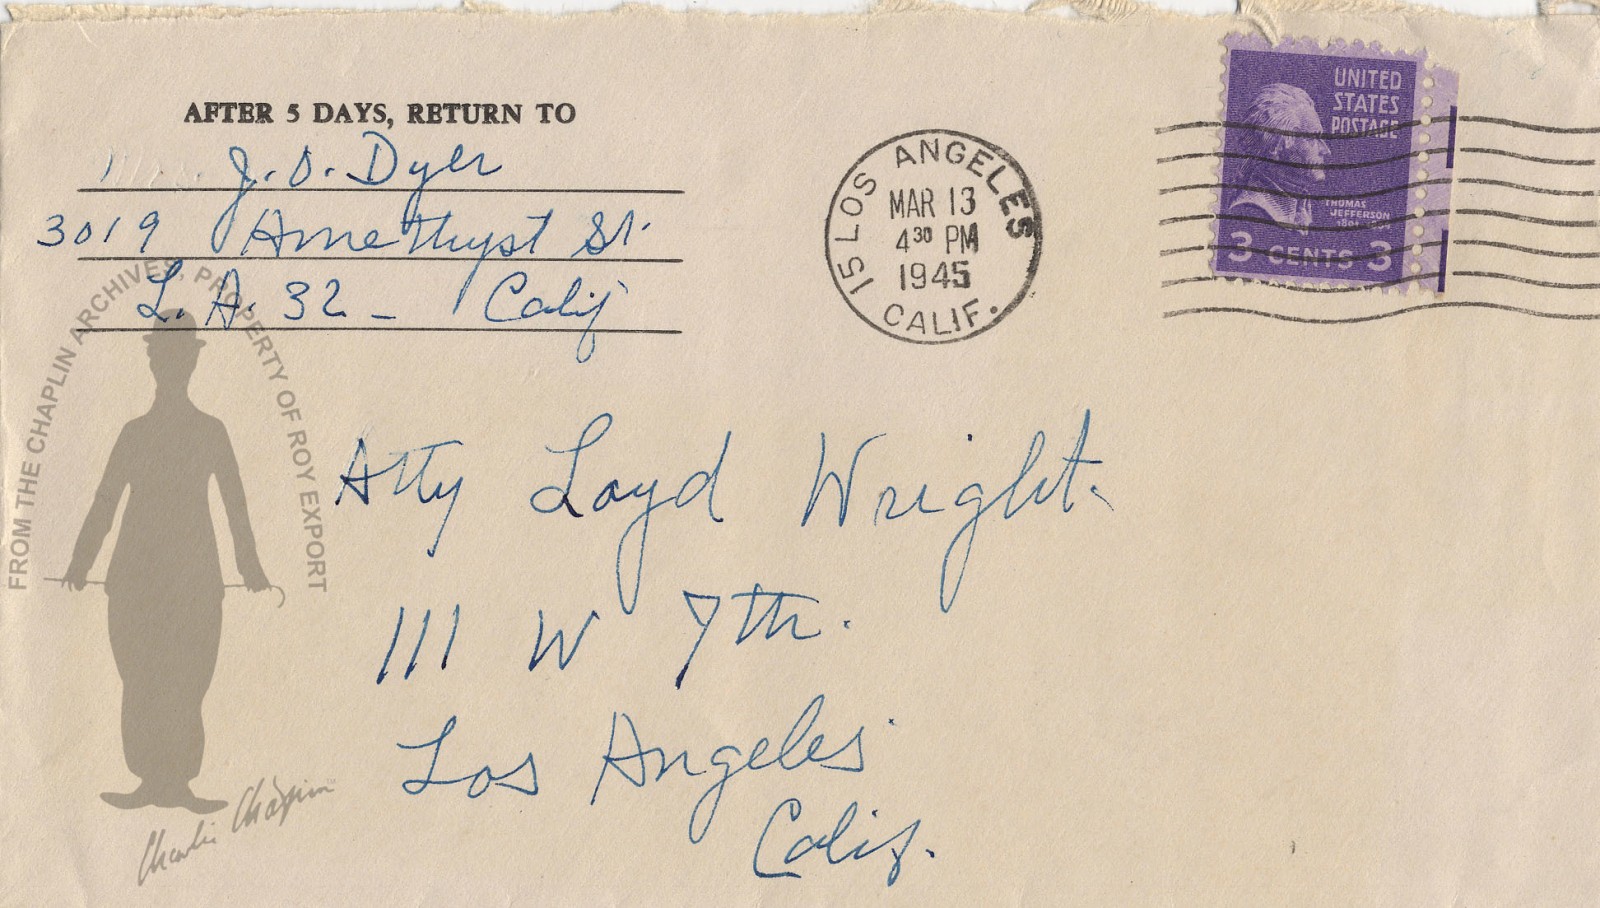 AFTER 5 DAYS, RETURN TO
J. O. Dyer
3019 Amethyst St.
L. A. 32 - Calif
LOS ANGELES 15
CALIF.
MAR 13
4 30 PM
1945
UNITED
STATES
POSTAGE
THOMAS
JEFFERSON
3 CENTS 3
Atty Loyd Wright.
111 W 7th.
Los Angeles
Calif.
FROM THE CHAPLIN ARCHIVES, PROPERTY OF ROY EXPORT
Charlie Chaplin